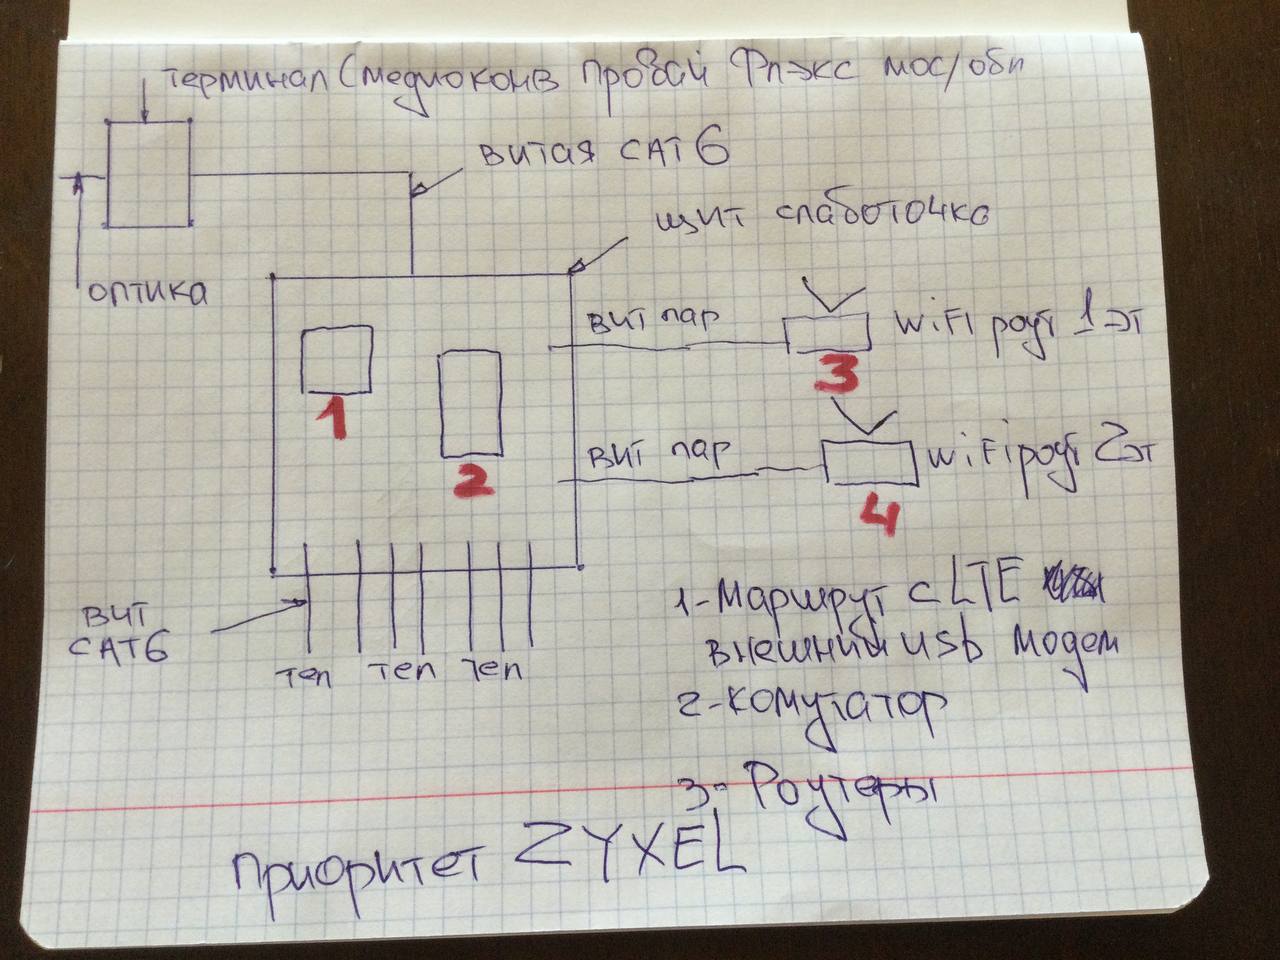 терминал (медиоконв провай Фл-экс мос/обл
витая САТ6
щит слаботочка
оптика
вит пар
WiFi роут 1 эт
1
3
2
вит пар
WiFi роут 2 эт
4
вит
САТ6
тел тел тел
1-Маршрут с LTE
внешний usb модем
2-комутатор
3- Роутеры
приоритет ZYXEL